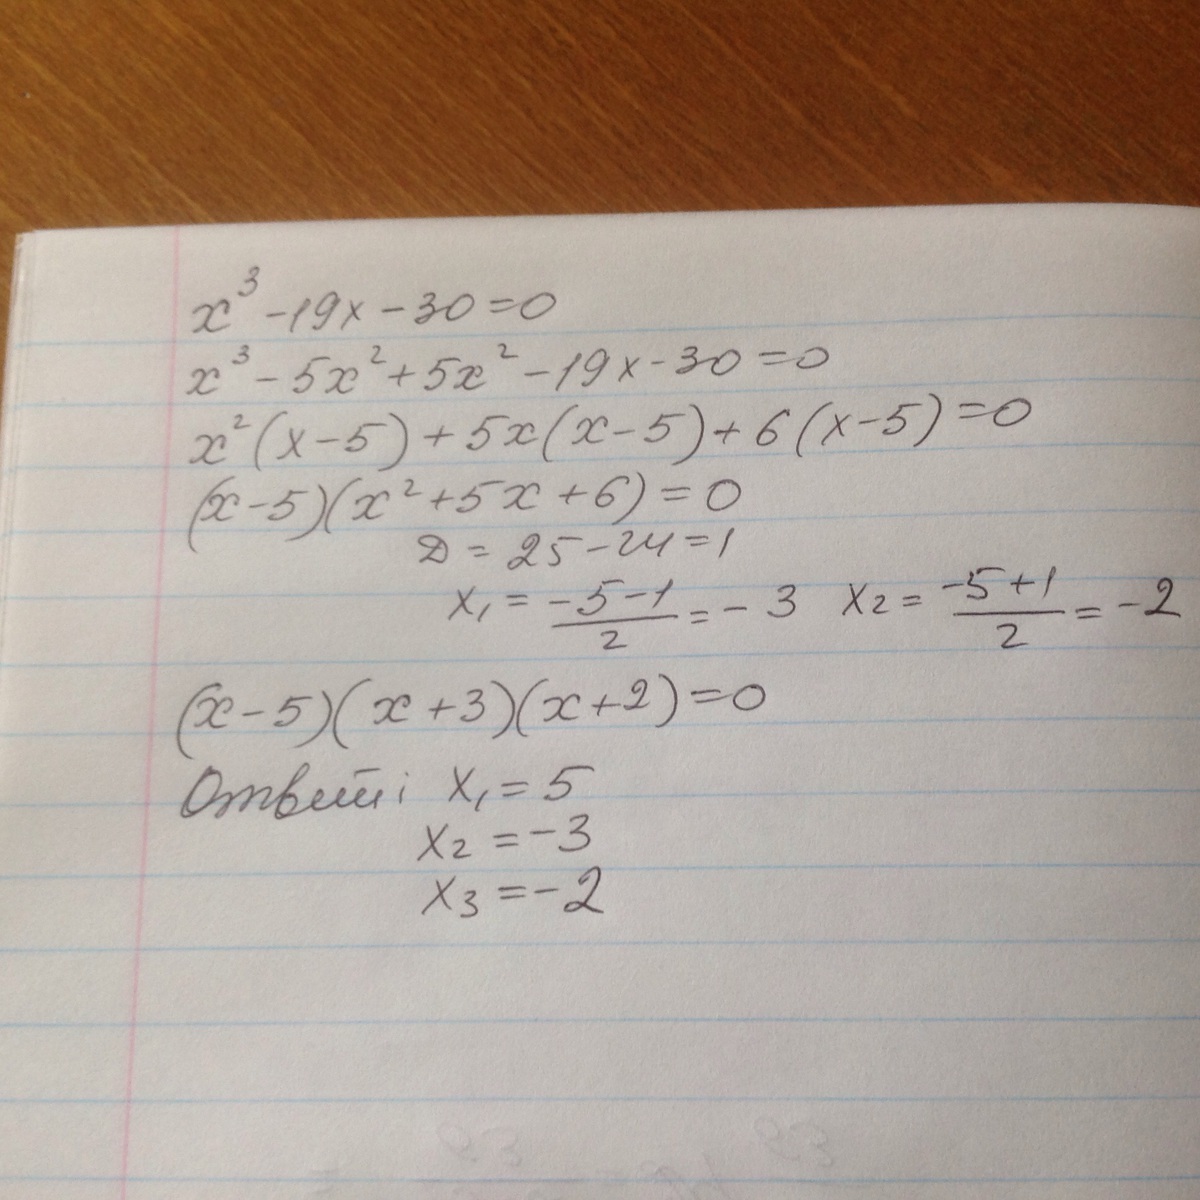 x³ - 19x - 30 = 0
x³ - 5x² + 5x² - 19x - 30 = 0
x²(x - 5) + 5x(x - 5) + 6(x - 5) = 0
(x - 5)(x² + 5x + 6) = 0
D = 25 - 24 = 1
x₁ = (-5 - 1)/2 = -3 x₂ = (-5 + 1)/2 = -2
(x - 5)(x + 3)(x + 2) = 0
Ответ: x₁ = 5
x₂ = -3
x₃ = -2